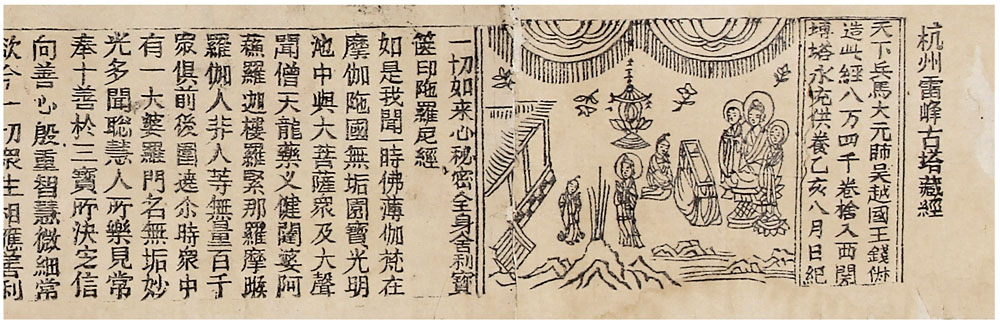 杭州雷峰古塔藏經
天下兵馬大元帥吳越國王錢俶
造此經八万四千卷捨入西關
塼塔永充供養乙亥八月日紀
一切如来心秘密全身舍利寶
篋印陁羅尼經
如是我聞一時佛薄伽梵在
摩伽陁國無垢園寶光明
池中與大菩薩衆及大聲
聞僧天龍藥叉健闥婆阿
蘇羅迦樓羅緊那羅摩睺
羅伽人非人等無量百千
衆俱前後圍遶尒時衆中
有一大婆羅門名無垢妙
光多聞聡慧人所樂見常
奉十善於三寶所決定信
向善心殷重智慧微細常
欲令一切衆生相應善利